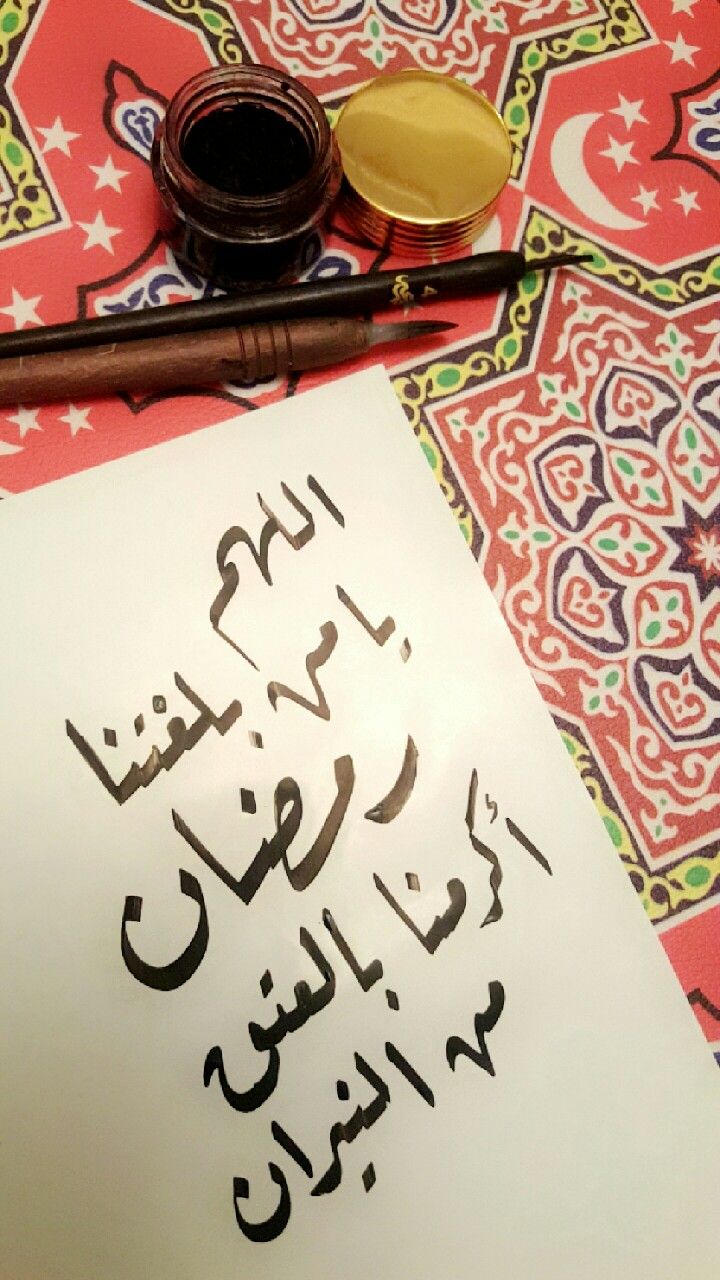 اللهم
يا من بلغتنا
رمضان
أكرمنا بالعتق
من النيران
4